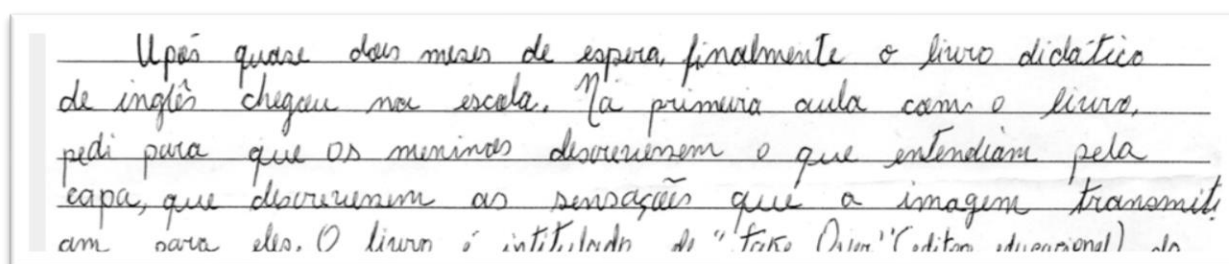 Após quase dois meses de espera, finalmente o livro didático
de inglês chegou na escola. Na primeira aula com o livro,
pedi para que os meninos descrevessem o que entendiam pela
capa, que descrevessem as sensações que a imagem transmiti
am para eles. O livro é intitulado de "Take Over" (editora educacional) do